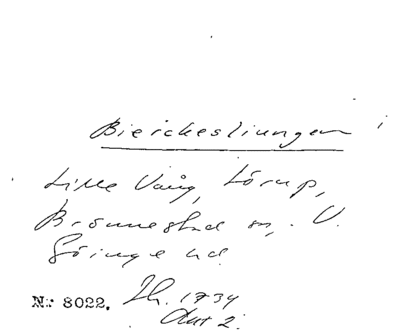 Bierckesliungen
Lille Vång, Lörup,
Brönnestad sn, V.
Göinge hd.
N:r 8022. Jb. 1734
Avs 2.